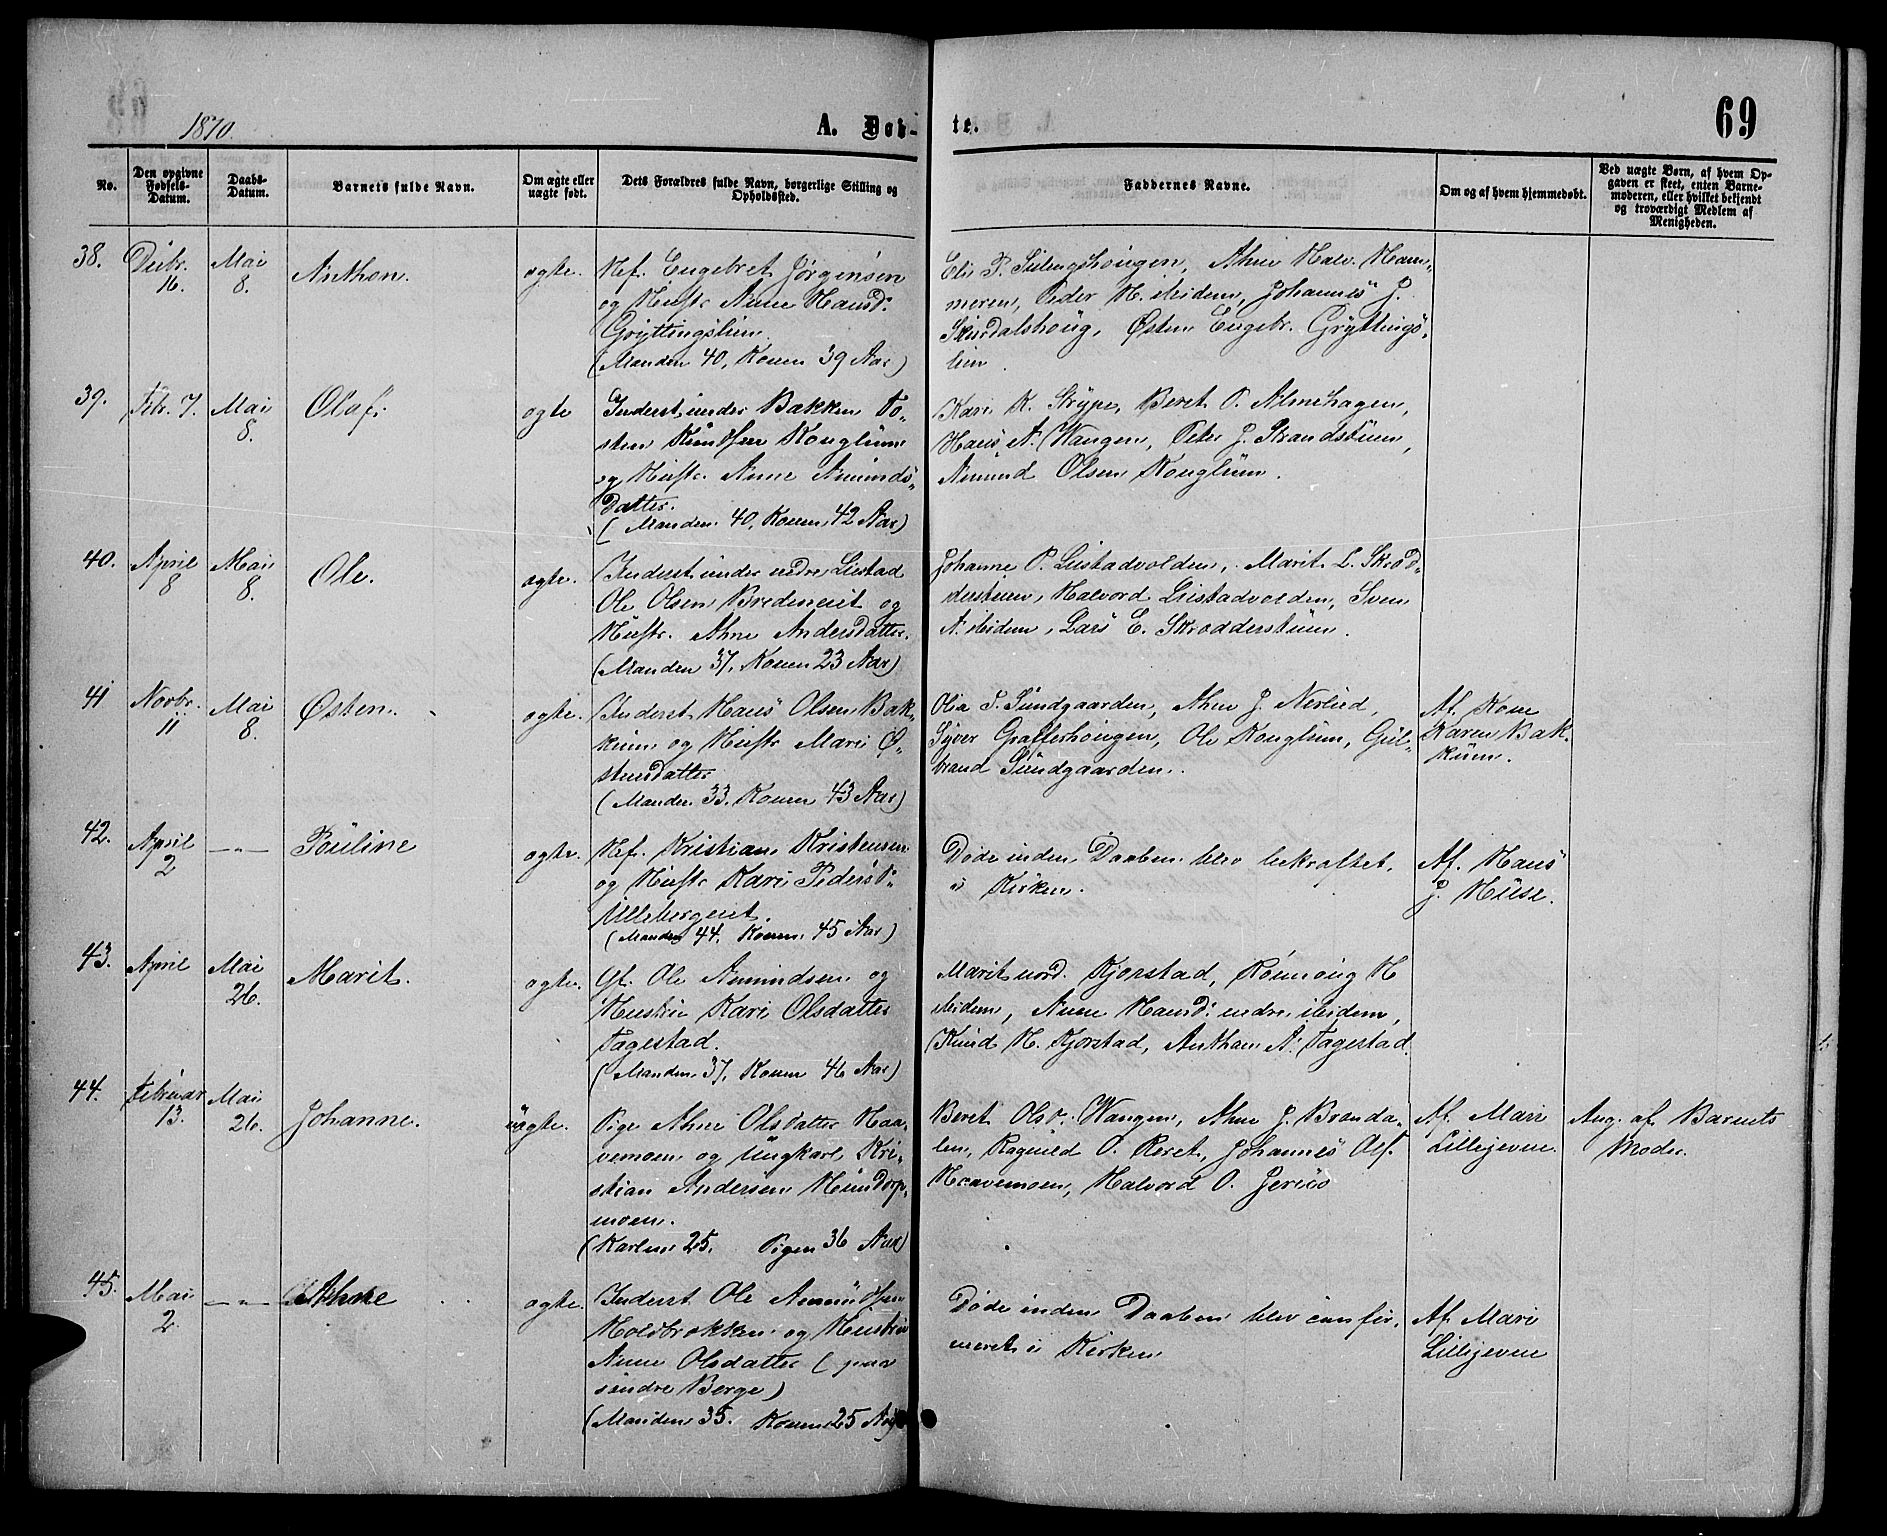 1870.
A. Døb-
te.
69
No.
Den opgivne
Fødsels-
Datum.
Daabs-
Datum.
Barnets fulde Navn.
Om ægte eller
uægte født.
Dets Forældres fulde Navn, borgerlige Stilling og
Opholdssted.
Faddernes Navne.
Om og af hvem hjemmedøbt.
Ved uægte Børn, af hvem Op-
gaven er skeet, enten Barne-
moderen, eller hvilket bekjendt
og troværdigt Medlem af
Menigheden.
38.
Decbr.
16.
Mai
8.
Anthon.
ægte.
Hf. Engebret Jørgensen
og Hustr. Anne Hansd:
Gryttingslien.
(Manden 40, Konen 39 Aar)
Eli P. Sylengshougen, Ahne Halv. Ham-
meren, Peder H. Midem, Johannes J.
Skurdalshoug, Østen Engebr. Gryttings-
lien.
39.
Febr. 7.
Mai
8.
Olaf.
ægte
Inderst under Bakken To-
sten Knudsen Konglum
og Hustr. Anne Amunds-
datter.
(Manden 40, Konen 42 Aar)
Kari K. Strype, Beret O. Almehagen,
Hans A. Wangen, Peter J. Strandstuen,
Amund Olsen Konglum.
40.
April
8
Mai
8.
Ole.
ægte.
Inderst under nedre Listad
Ole Olsen Bredeneiet og
Hustr. Ahne Andersdatter.
(Manden 37, Konen 23 Aar)
Johanne P. Listadvolden, Marit L. Skrod-
derstuen, Halvord Listadvolden, Sven
A. Midem, Lars E. Skrodderstuen.
41
Novbr.
11
Mai
8.
Østen.
ægte.
Inderst Hans Olsen Bak-
kum og Hustr. Mari Ø-
stensdatter
(Manden 33. Konen 43 Aar)
Olia T. Sundgaarden, Ahne J. Neslied,
Syver Grafferhougen, Ole Konglum, Gul-
brand Sundgaarden.
Af Kone
Karen Bak-
kum.
42.
April
2
— " —
Pauline
ægte.
Hf. Kristian Kristensen
og Hustr. Kari Pedersd:
Ullebergeiet.
(Manden 44. Konen 45 Aar)
Døde inden Daaben blev bekræftet
i Kirken.
Af Hans
J. Huse.
43.
April
Mai
26.
Marit.
ægte.
Gf. Ole Amundsen og
Hustru Kari Olsdatter
Tagestad.
(Manden 37, Konen 46 Aar)
Marit nord. Kjorstad, Rønnoug H
Midem, Anne Hansd: nedre Midem,
Knud H. Kjorstad, Anthon A. Tagestad.
44.
Februar
13.
Mai
26.
Johanne.
uægte.
Pige Ahne Olsdatter Haa-
vemoen og Ungkarl Kri-
stian Andersen Hundorp-
moen.
(Karlen 25. Pigen 36 Aar)
Beret Olsd. Wangen, Ahne J. Branda-
len, Ragnild O. Reret, Johannes Ols.
Haavemoen, Halvord O. Jerico
Af Mari
Lillegjeven.
Ang. af Barnets
Moder.
45.
Mai
2.
— " —
Ahne
ægte.
Inderst Ole Amundsen
Holdbrokken og Hustru
Anne Olsdatter (paa
søndre Berge)
(Manden 35. Konen 25 Aar)
Døde inden Daaben blev confir-
meret i Kirken
Af Mari
Lillegjeven